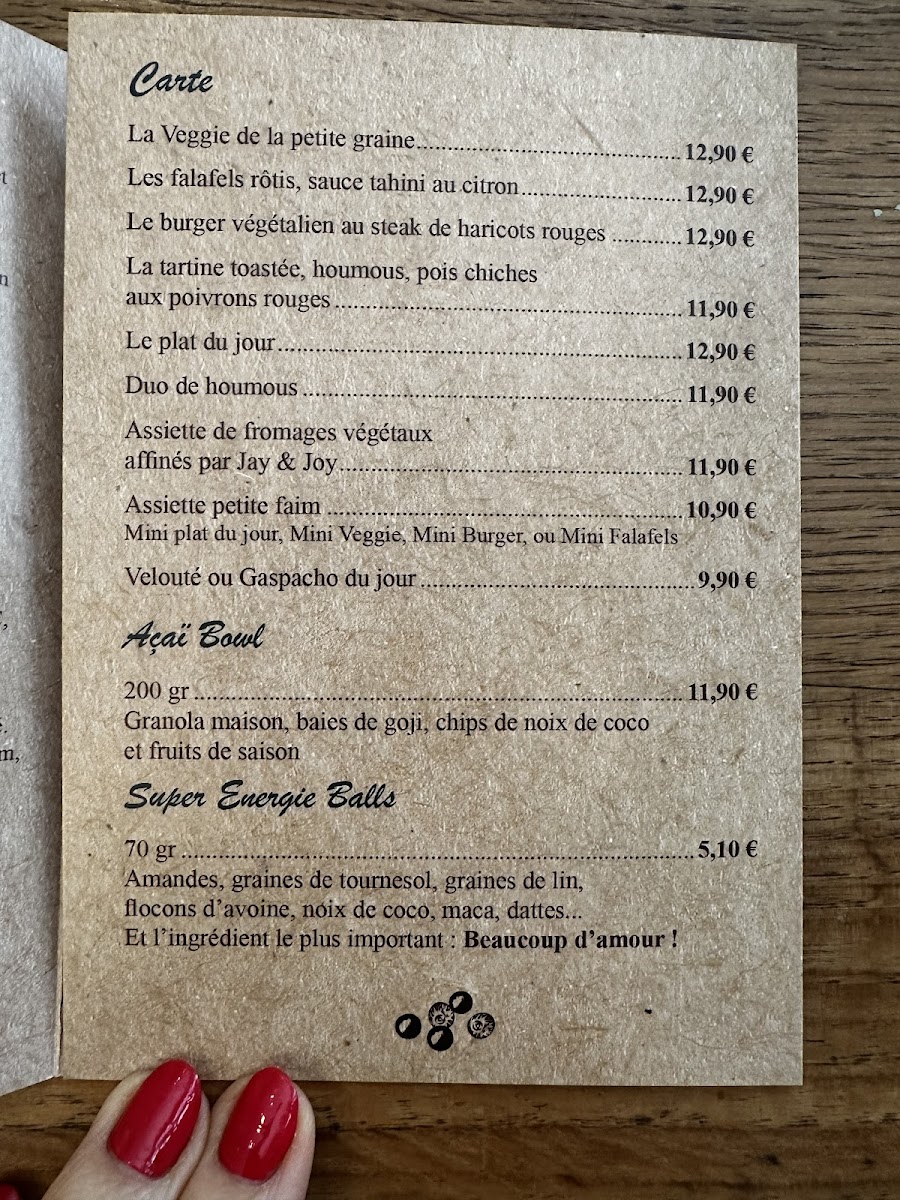 Carte
La Veggie de la petite graine.......... 12,90 €
Les falafels rôtis, sauce tahini au citron.......... 12,90 €
Le burger végétalien au steak de haricots rouges .......... 12,90 €
La tartine toastée, houmous, pois chiches
aux poivrons rouges .......... 11,90 €
Le plat du jour.......... 12,90 €
Duo de houmous .......... 11,90 €
Assiette de fromages végétaux
affinés par Jay & Joy.......... 11,90 €
Assiette petite faim .......... 10,90 €
Mini plat du jour, Mini Veggie, Mini Burger, ou Mini Falafels
Velouté ou Gaspacho du jour .......... 9,90 €
Açaï Bowl
200 gr .......... 11,90 €
Granola maison, baies de goji, chips de noix de coco
et fruits de saison
Super Energie Balls
70 gr .......... 5,10 €
Amandes, graines de tournesol, graines de lin,
flocons d’avoine, noix de coco, maca, dattes...
Et l’ingrédient le plus important : Beaucoup d’amour !